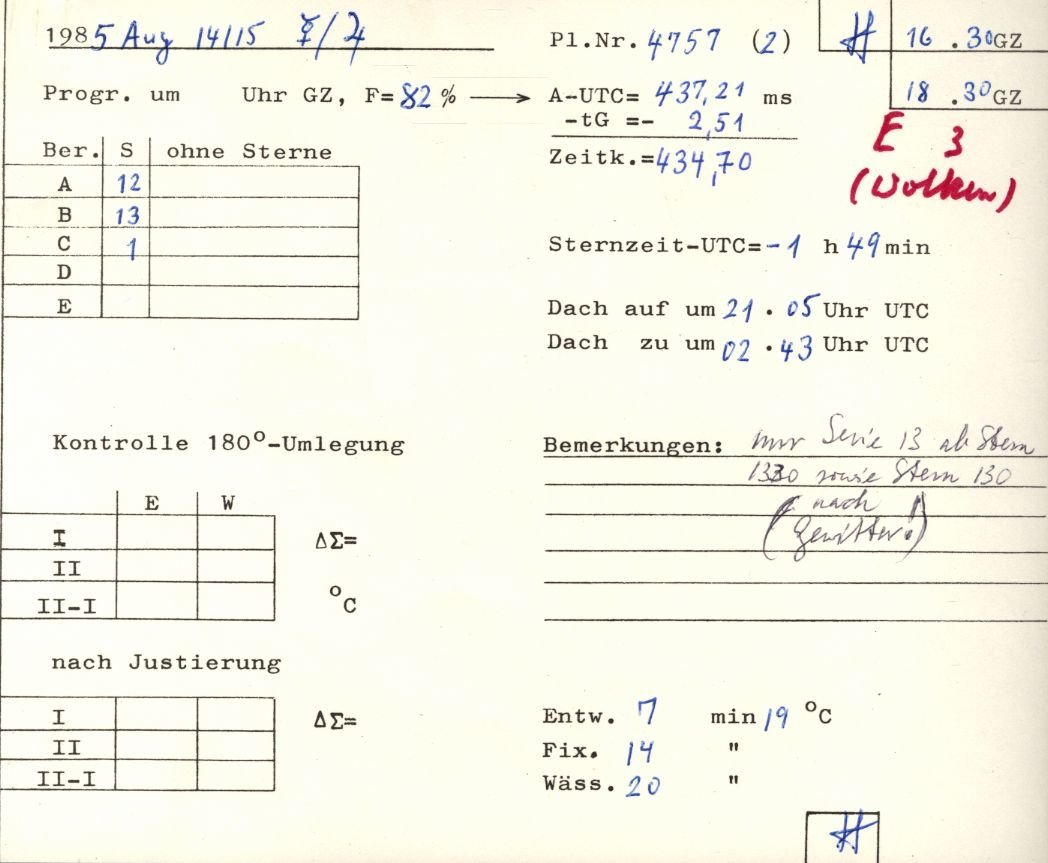 1985 Aug 14/15 ☿/♃
Pl.Nr. 4757 (2)
16 .30GZ
18 .30GZ
Progr. um Uhr GZ, F=82% → A-UTC= 437,21 ms
-tG =- 2,51
Zeitk.=434,70
E 3
(Wolken)
Ber. S ohne Sterne
A 12
B 13
C 1
D
E
Sternzeit-UTC=-1 h 49min
Dach auf um 21 . 05 Uhr UTC
Dach zu um 02 .43 Uhr UTC
Kontrolle 180°-Umlegung
E W
I ΔΣ=
II
II-I °C
Bemerkungen: nur Serie 13 ab Stern
1330 sowie Stern 130
(nach
Gewitter!)
nach Justierung
I ΔΣ=
II
II-I
Entw. 7 min 19 °C
Fix. 14 "
Wäss. 20 "